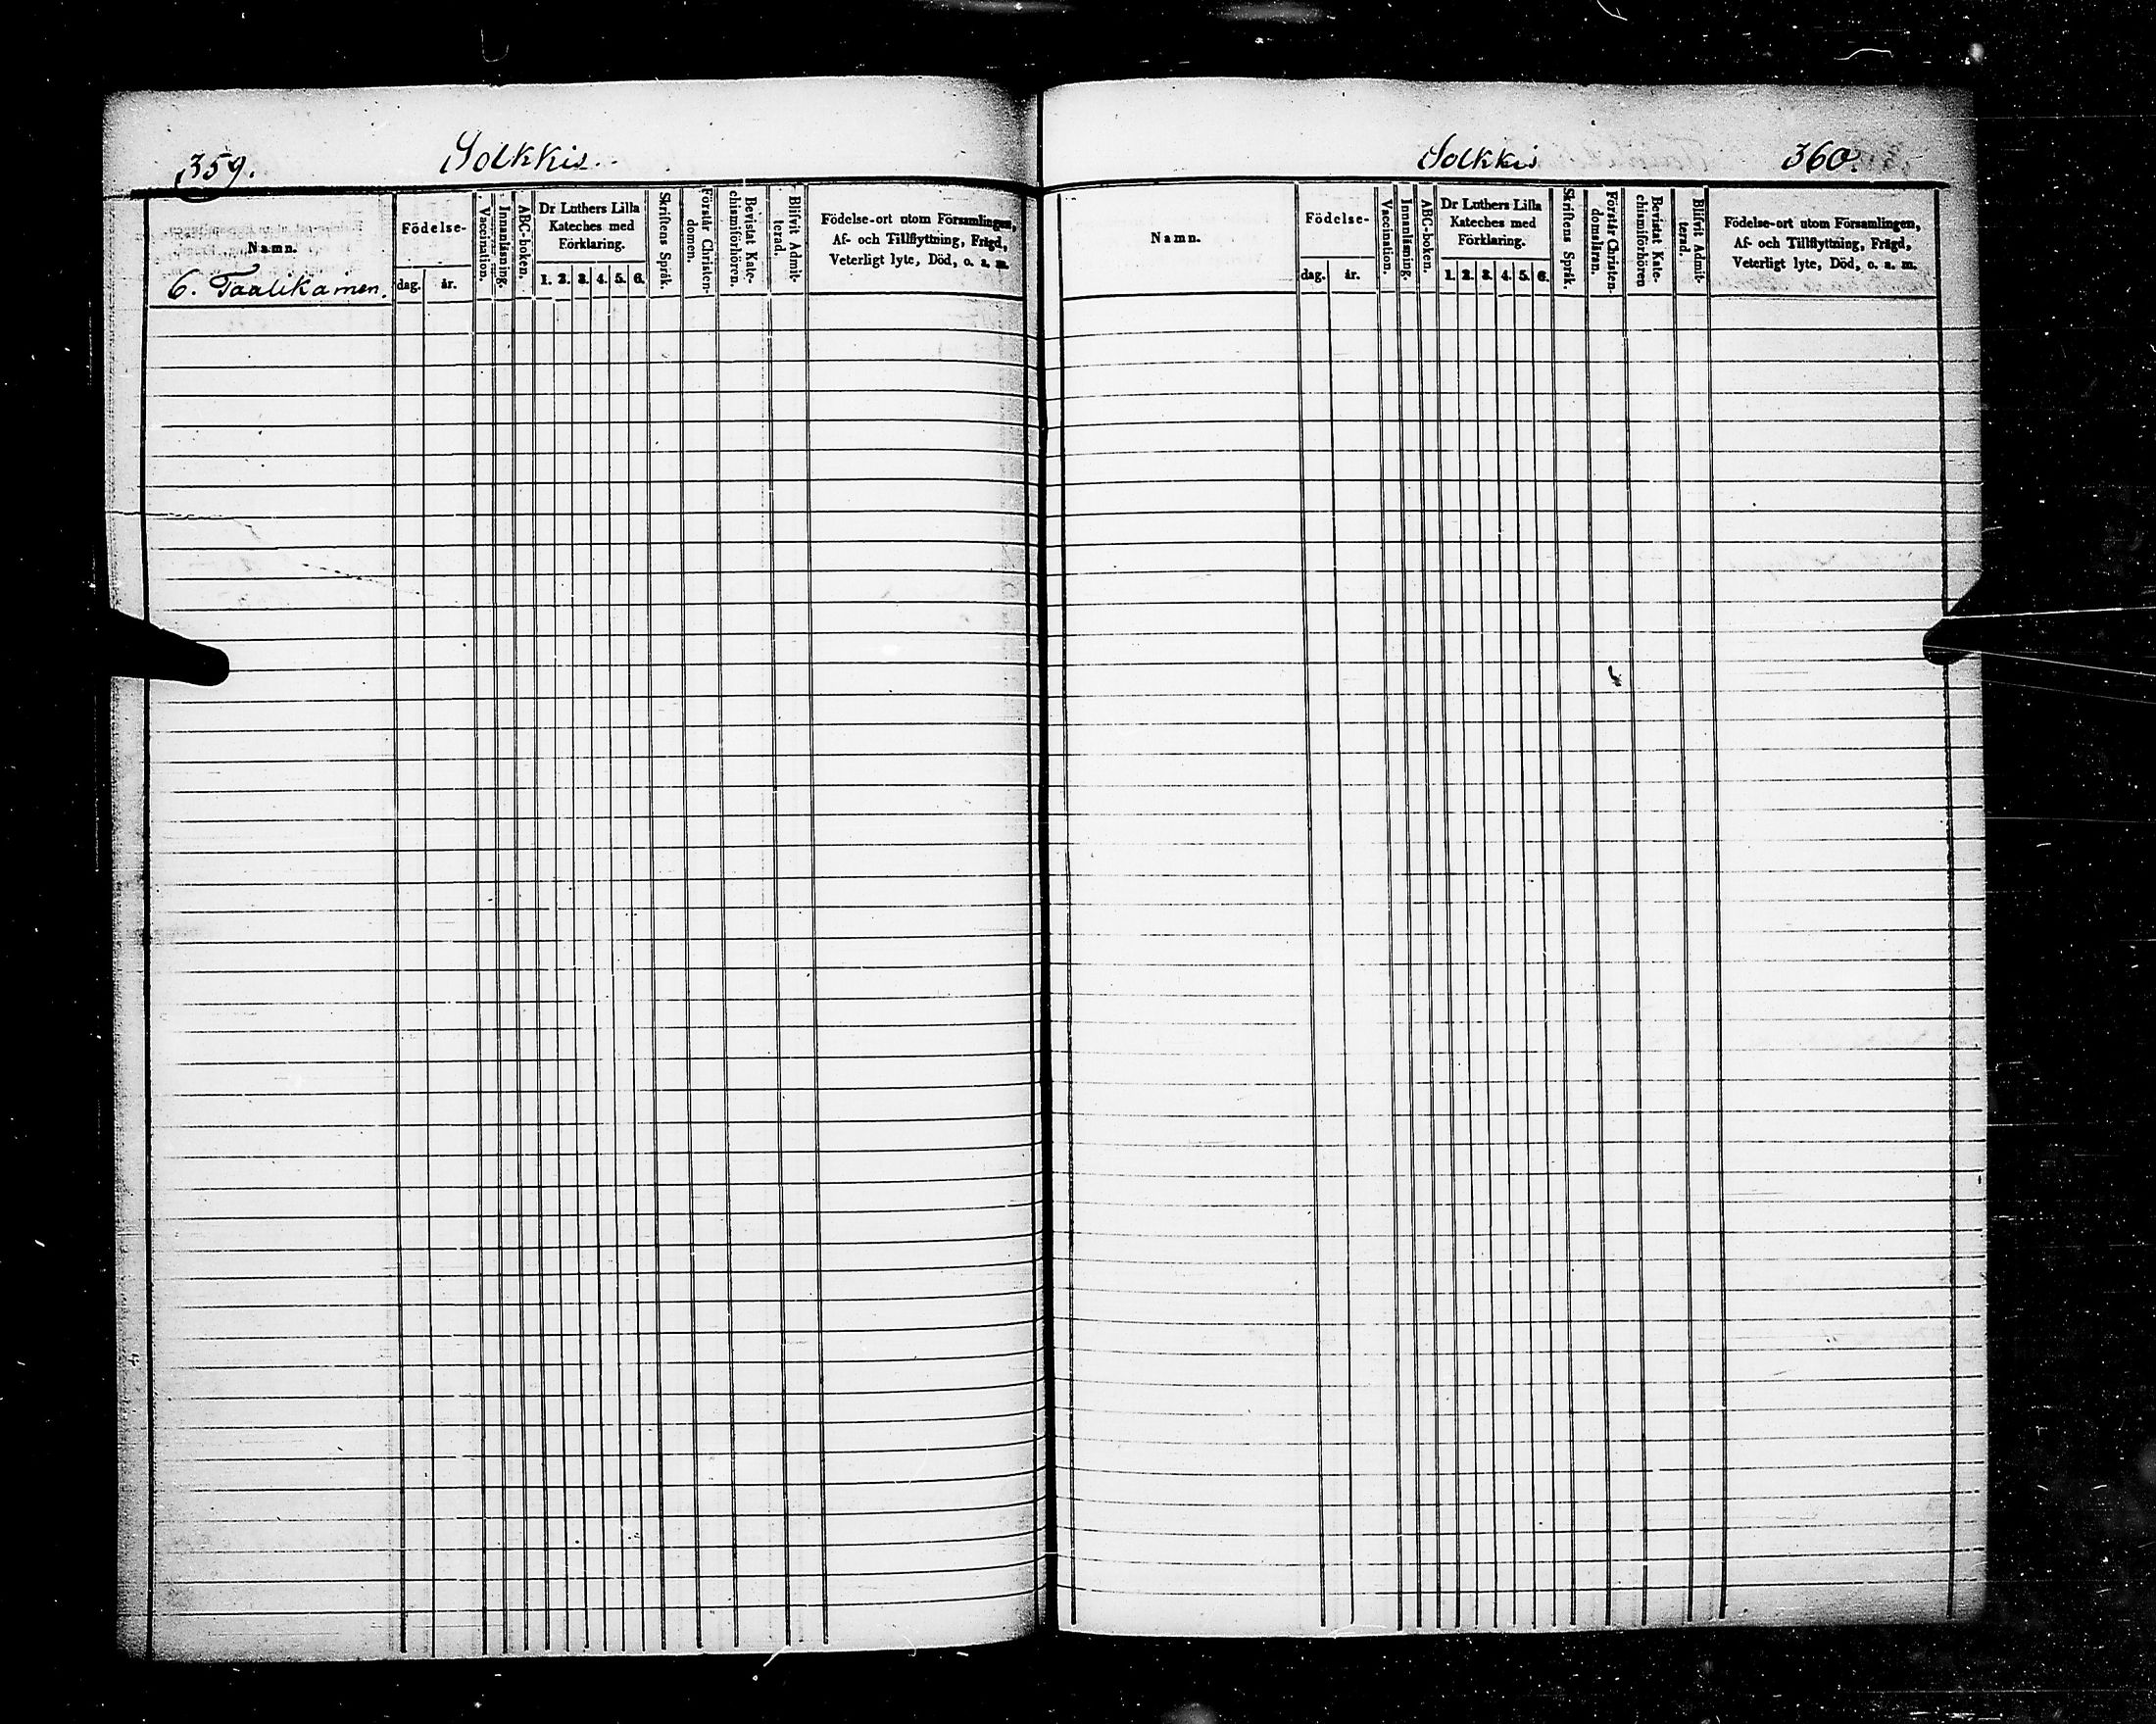 359.
Solkkis.
Namn.
6. Taalikainen.
Födelse-
dag.
år.
Vaccination.
Innanläsning.
ABC-boken.
Dr Luthers Lilla
Kateches med
Förklaring.
1. 2. 3. 4. 5. 6.
Skriftens Språk.
Förstår Christen-
domen.
Bevistat Kate-
chismiförhören.
Blifvit Admit-
terad.
Födelse-ort utom Församlingen,
Af- och Tillflyttning, Frägd,
Veterligt lyte, Död, o. s. m.
Solkkis
360.
Namn.
Födelse-
dag.
år.
Vaccination.
Innanläsning.
ABC-boken.
Dr Luthers Lilla
Kateches med
Förklaring.
1. 2. 3. 4. 5. 6.
Skriftens Språk.
Förstår Christen-
domsläran.
Bevistat Kate-
chismiförhören
Blifvit Admit-
terad.
Födelse-ort utom Församlingen,
Af- och Tillflyttning, Frägd,
Veterligt lyte, Död, o. s. m.